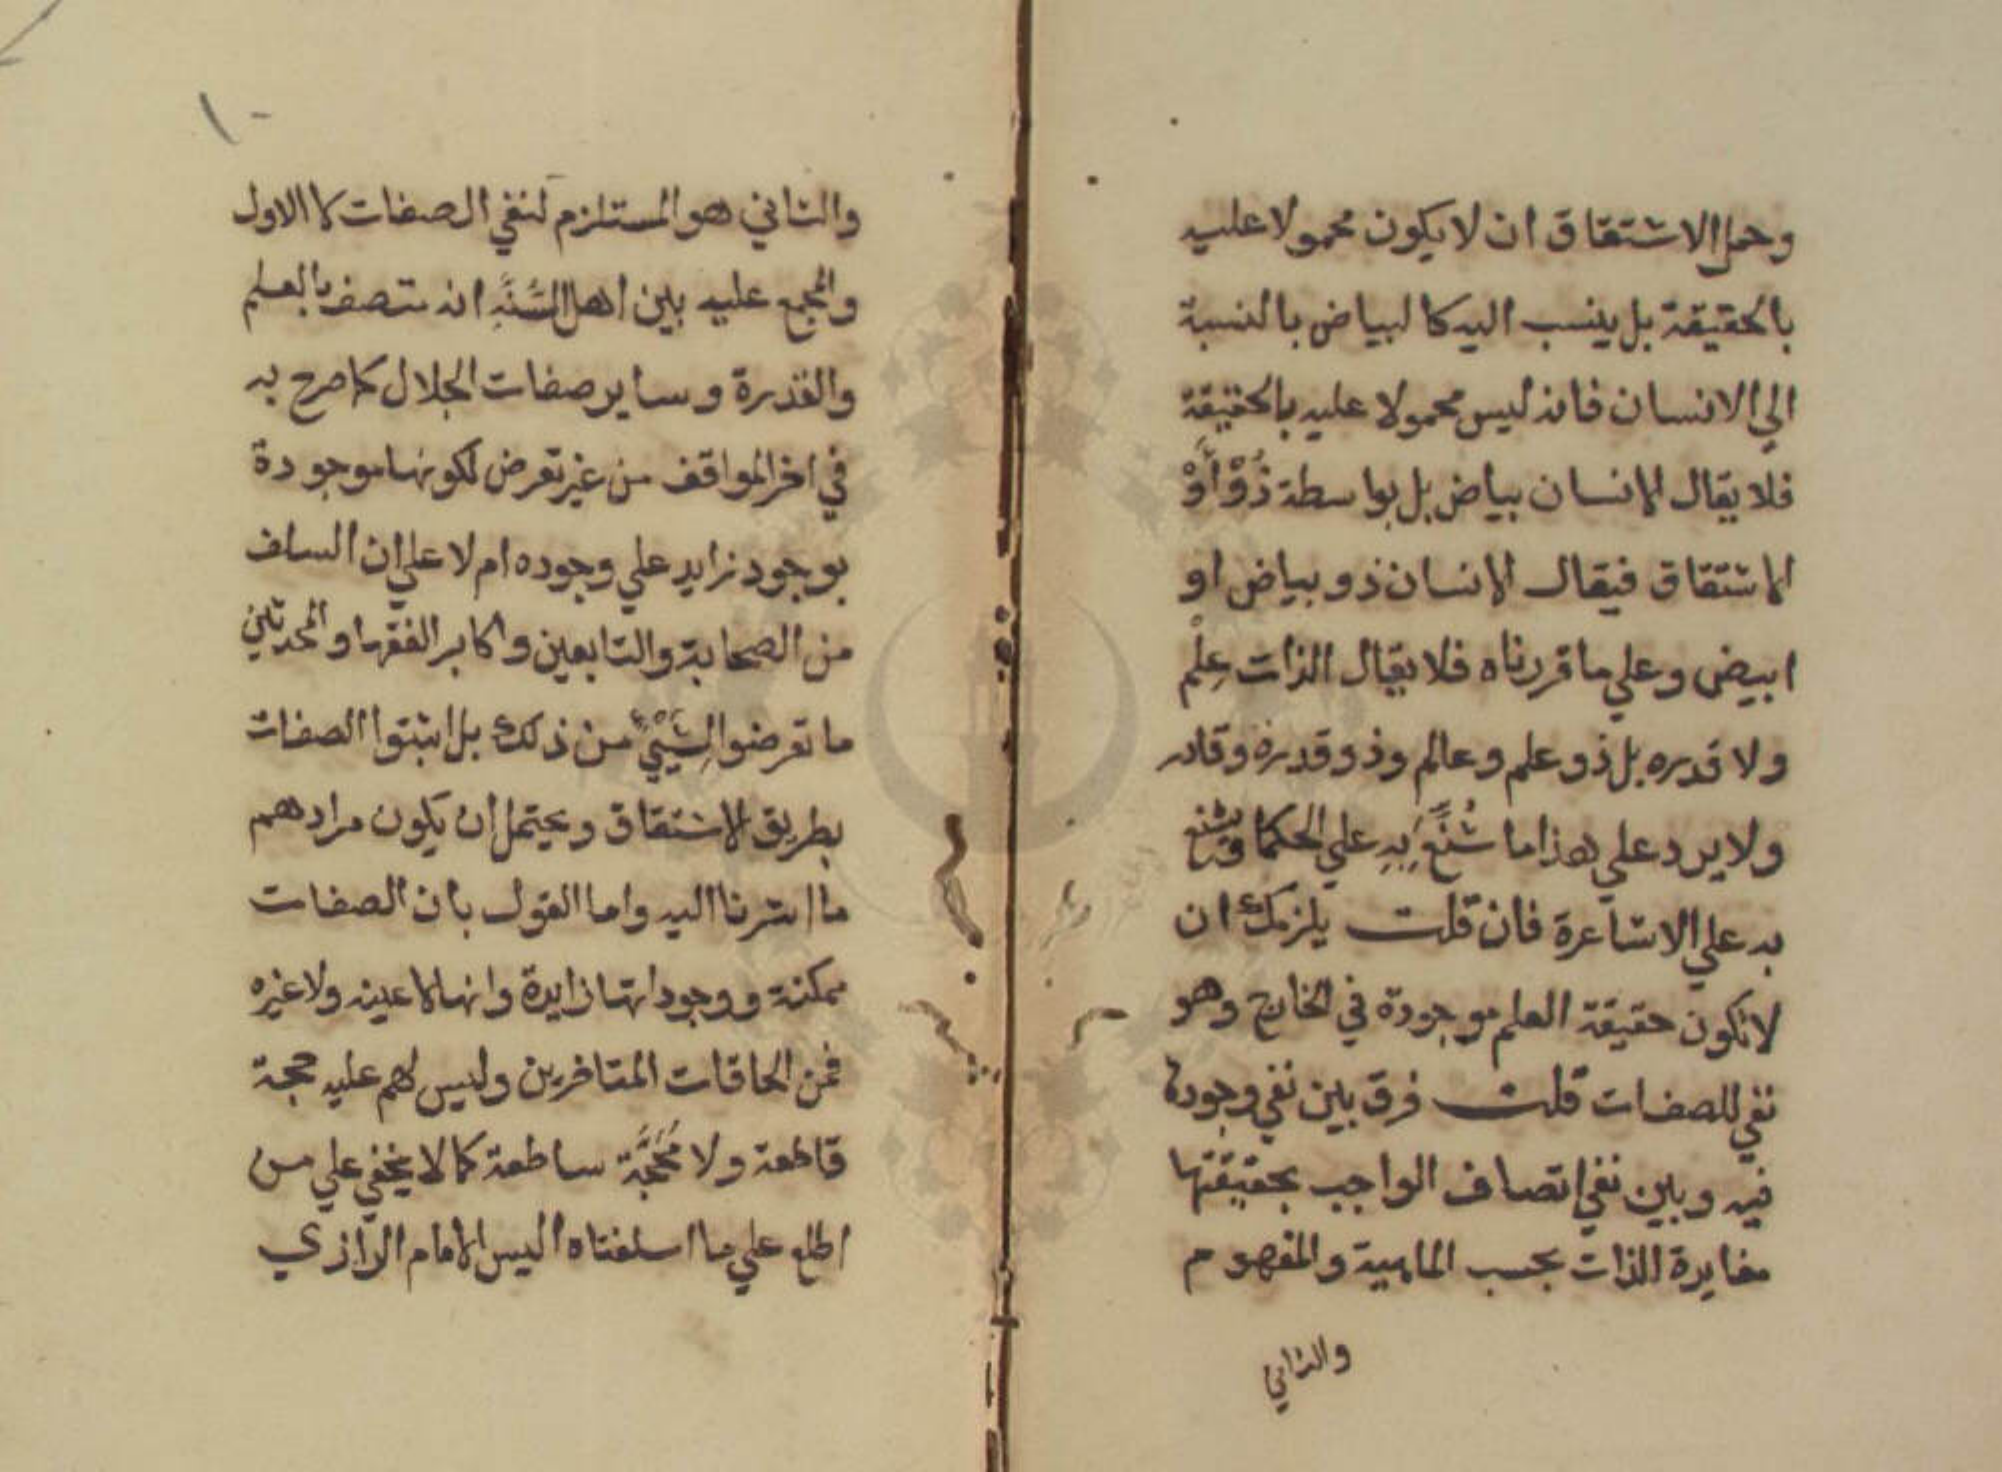 وحمل الاشتقاق ان لا يكون محمولا عليه
بالحقيقة بل ينسب اليه كالبياض بالنسبة
الي الانسان فانه ليس محمولا عليه بالحقيقة
فلا يقال الانسان بياض بل بواسطة ذُوْ أَوْ
الاشتقاق فيقال الانسان ذو بياض او
ابيض وعلي ما قررناه فلا يقال الذات عِلْم
ولا قدره بل ذو علم وعالم وذو قدرة وقادر
ولا يرد علي هذا ما شُنِّعَ بِهِ علي الحكما ويشنع
به علي الاشاعرة فان قلت يلزمك ان
لا تكون حقيقة العلم موجودة في الخارج وهو
نفي للصفات قلت فرق بين نفي وجودها
فيه وبين نفي اتصاف الواجب بحقيقتها
مغايرة الذات بحسب الماهية والمفهوم
والثاني
١٠
والثاني هو المستلزم لنفي الصفات لا الاول
والمجمع عليه بين اهل السُّنَّةِ انه متصف بالعلم
والقدرة وساير صفات الجلال كما صرح به
في اخر المواقف من غير تعرض لكونها موجودة
بوجود زايد علي وجوده ام لا علي ان السلف
من الصحابة والتابعين واكابر الفقها والمحدثين
ما تعرضوا لِشَيْئٍ من ذلك بل اثبتوا الصفات
بطريق الاشتقاق ويحتمل ان يكون مرادهم
ما اشرنا اليه واما القول بان الصفات
ممكنة ووجوداتها زايدة وانها لا عينه ولا غيره
فمن الحاقات المتاخرين وليس لهم عليه حجة
قاطعة ولا مَحَجَّة ساطعة كما لا يخفي علي من
اطلع علي ما اسلفناه اليس الامام الرازي